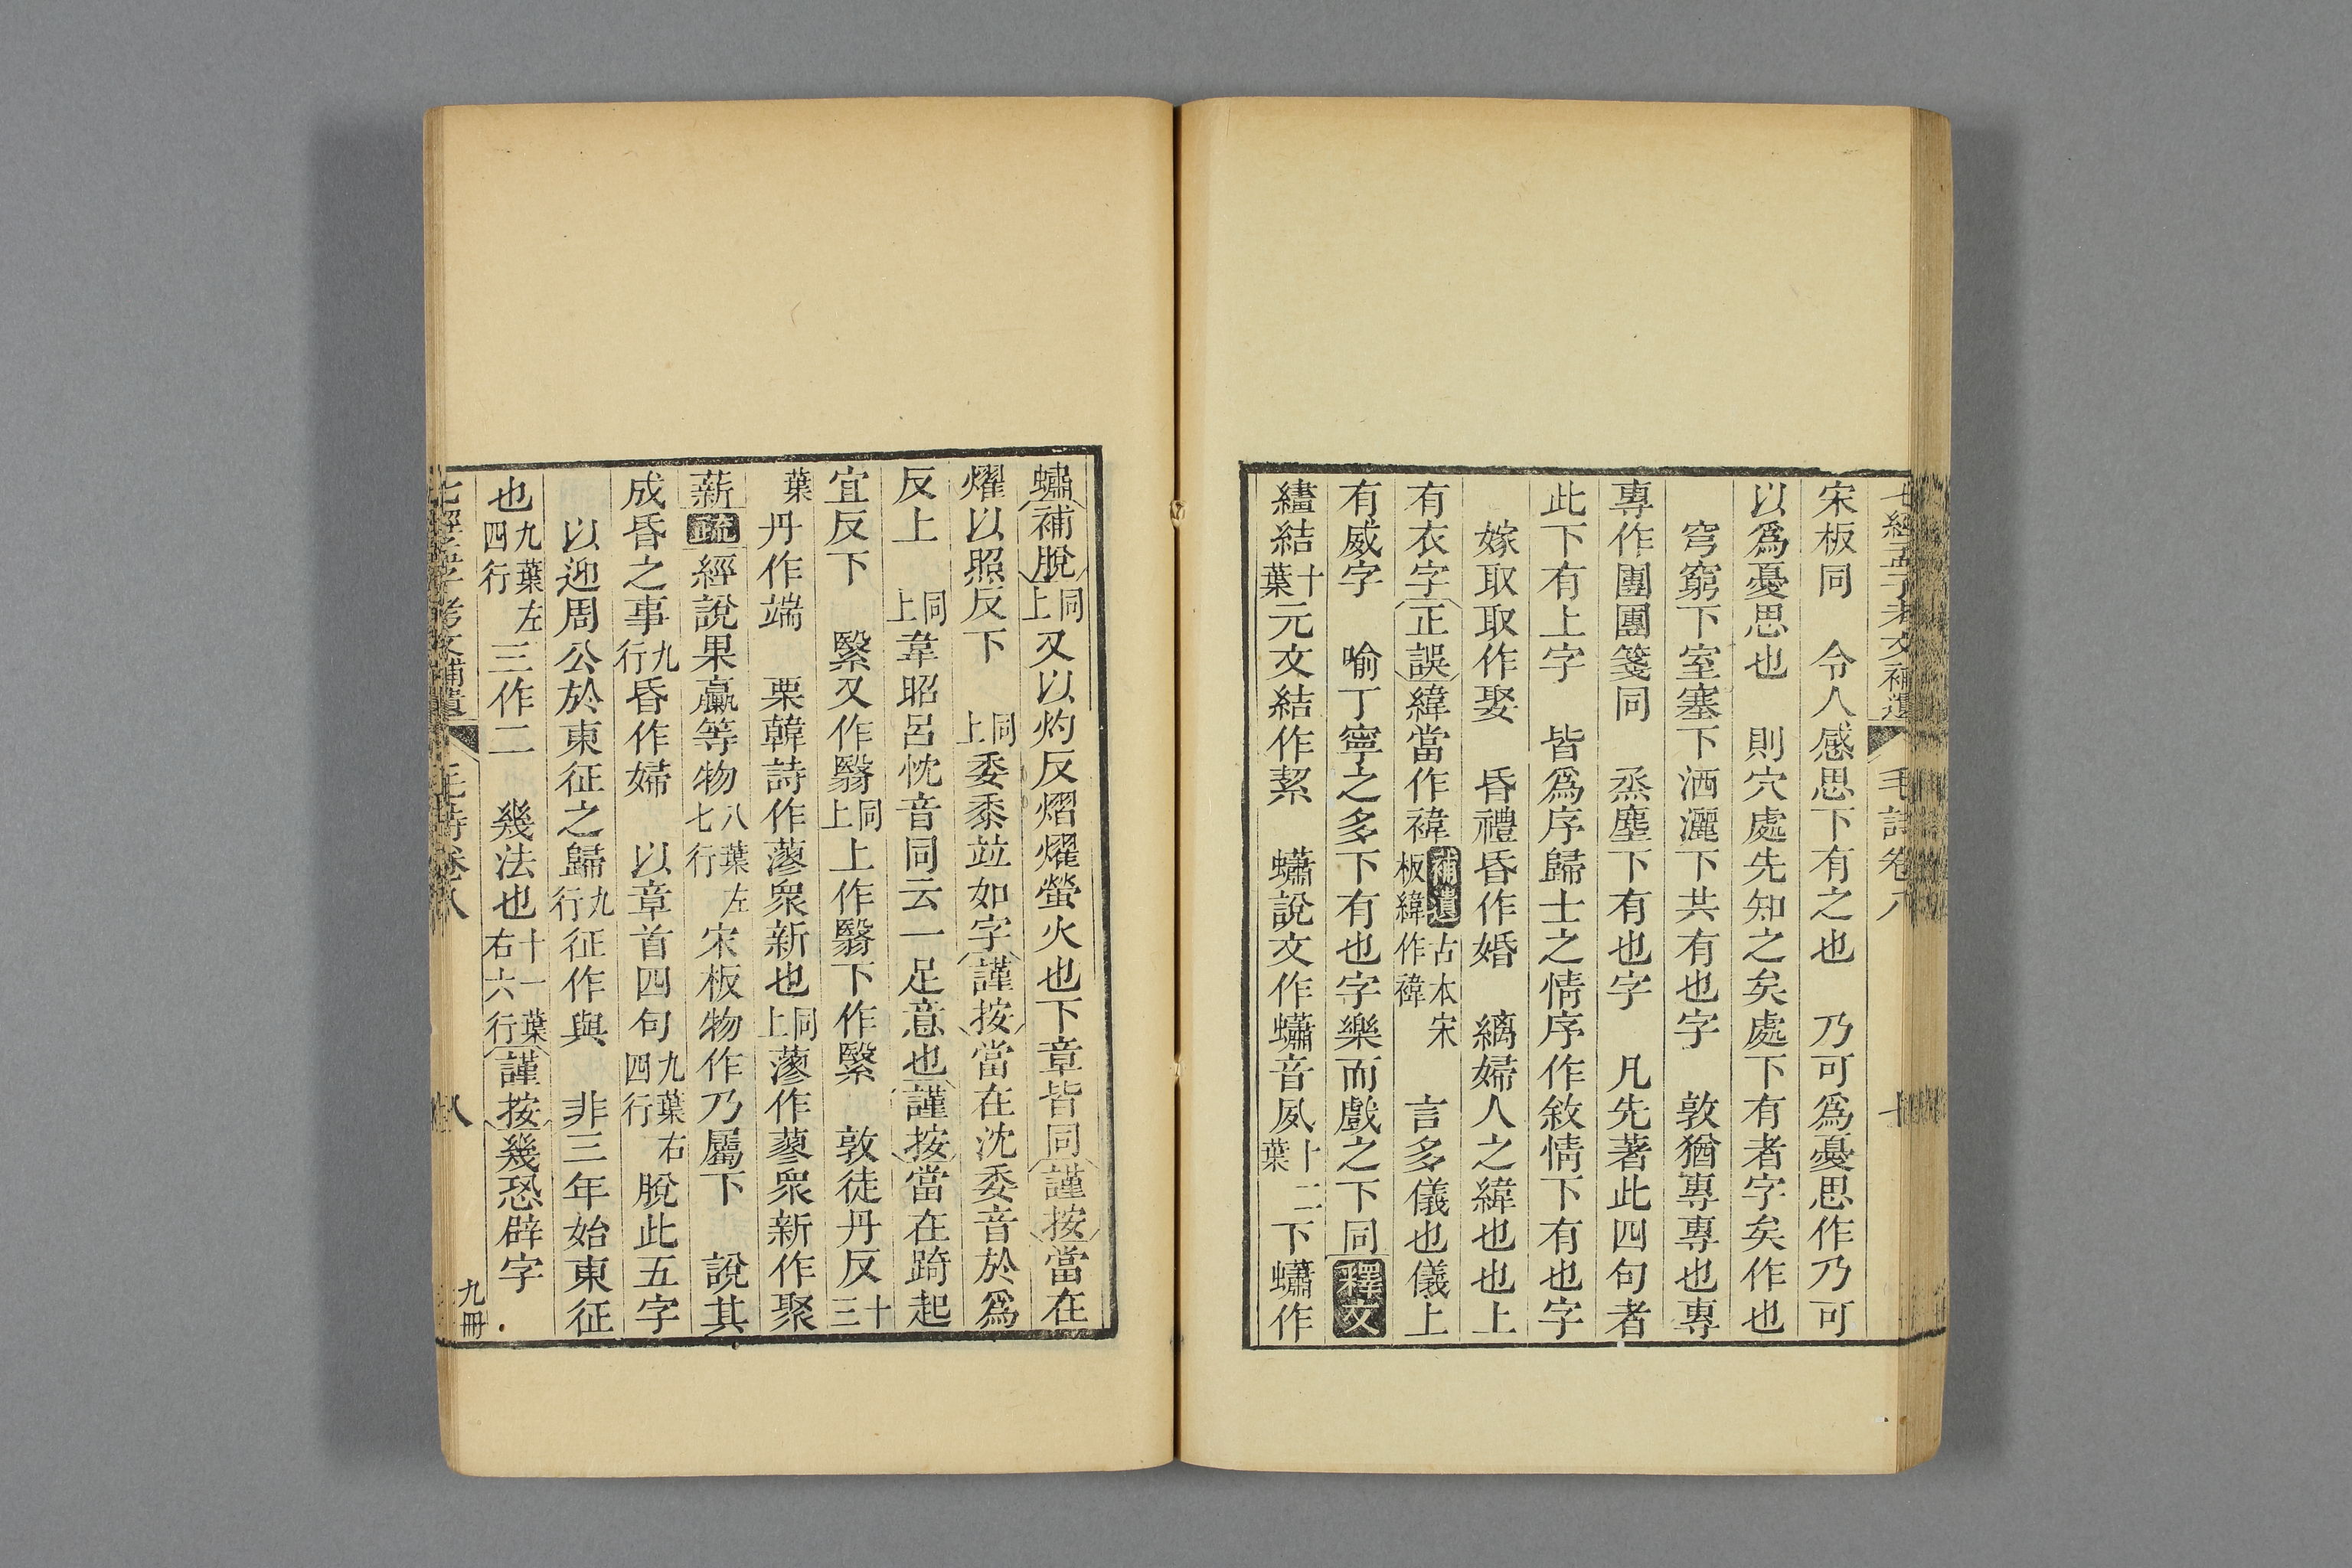 七經孟子考文補遺 毛詩卷八
宋板同 令人感思下有之也 乃可爲憂思作乃可
以爲憂思也 則穴處先知之矣處下有者字矣作也
穹窮下室塞下洒灑下共有也字 敦猶專專也專
專作團團箋同 烝塵下有也字 凡先著此四句者
此下有上字 皆爲序歸士之情序作敘情下有也字
嫁取取作娶 昏禮昏作婚 縭婦人之緯也也上
有衣字正誤緯當作褘補遺古本宋板緯作褘 言多儀也儀上
有威字 喻丁寧之多下有也字樂而戲之下同釋文
繣結十葉元文結作絜 蠨說文作蟰音夙十二葉下蠨作
蟰補脫同上又以灼反熠燿螢火也下章皆同謹按當在
燿以照反下 同上委黍竝如字謹按當在沈委音於爲
反上 同上韋昭呂忱音同云一足意也謹按當在踦起
宜反下 繄又作翳同上上作翳下作繄 敦徒丹反十三
葉丹作端 栗韓詩作蓼衆新也同上蓼作蓼衆新作聚
薪疏經說果臝等物八葉左七行宋板物作乃屬下 說其
成昏之事九行昏作婦 以章首四句九葉右四行脫此五字
以迎周公於東征之歸九行征作與 非三年始東征
也九葉左四行三作二 幾法也十一葉右六行謹按幾恐辟字
七經孟子考文補遺 毛詩卷八 八 九冊